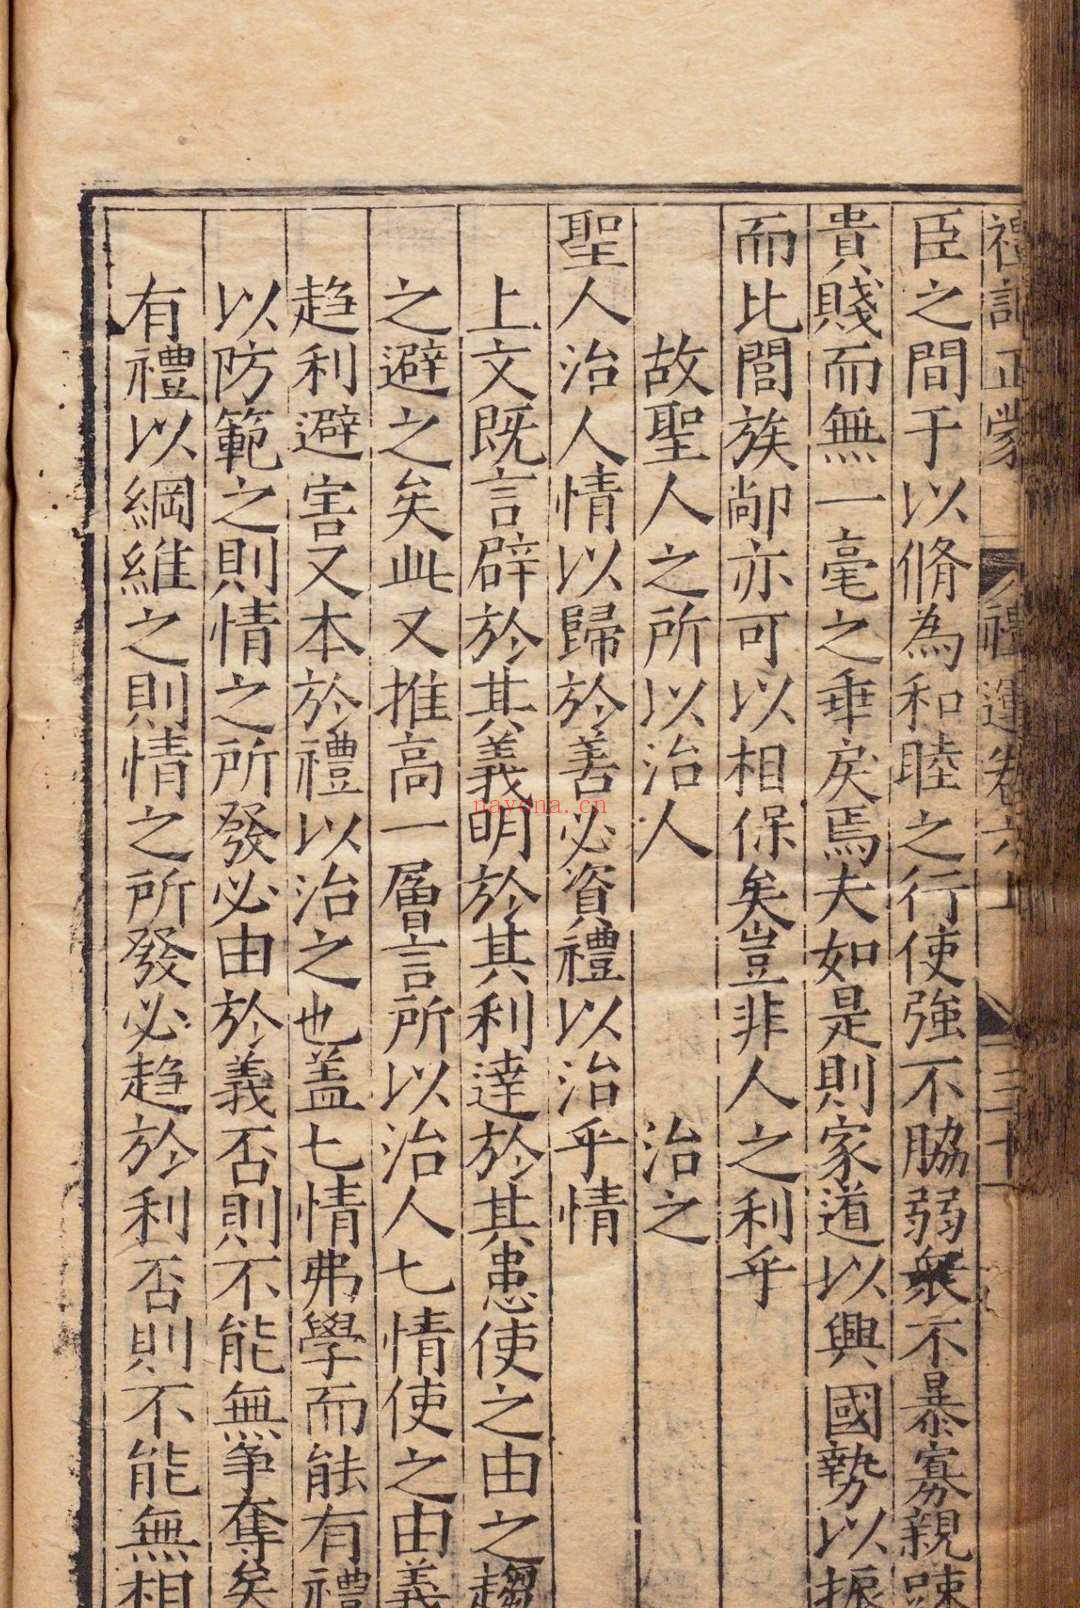 禮記正蒙 禮運卷六上 三十一
臣之間于以脩為和睦之行使強不脇弱衆不暴寡親踈
貴賤而無一毫之乖戾焉夫如是則家道以興國勢以振
而比閭族鄙亦可以相保矣豈非人之利乎
故聖人之所以治人 治之
聖人治人情以歸於善必資禮以治乎情
上文既言辟於其義明於其利達於其患使之由之趨
之避之矣此又推高一層言所以治人七情使之由義
趋利避害又本於禮以治之也盖七情弗學而能有禮
以防範之則情之所發必由於義否則不能無爭奪矣
有禮以綱維之則情之所發必趋於利否則不能無相
nayona.cn